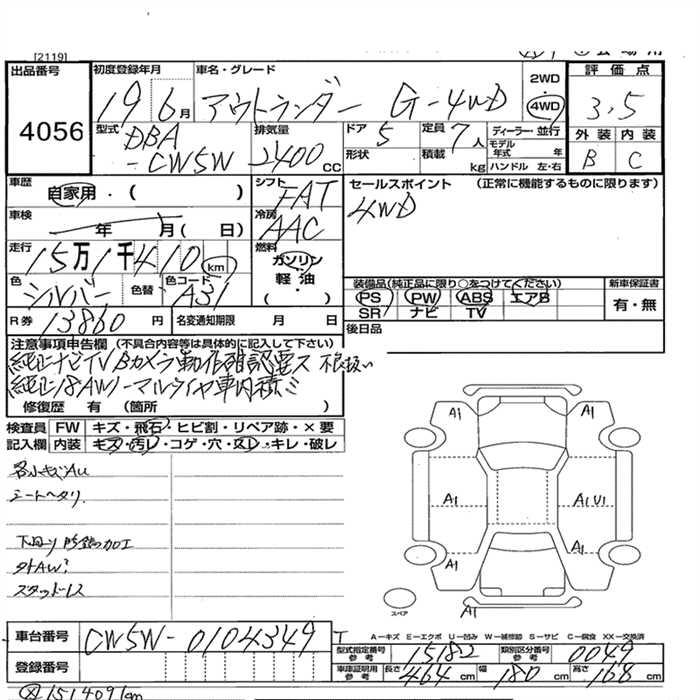 [2119]
出品番号
4056
初度登録年月
19 6月
車名・グレード
アウトランダー G-4WD
2WD
4WD
評価点
3.5
外装 内装
B C
型式
DBA
-CW5W
排気量
2400 CC
ドア 5
形状
定員 7人
積載 kg
ディーラー・並行
モデル年式 年
ハンドル 左・右
車歴
自家用・( )
車検
年 月( 日)
走行
15万1千410 km
色
シルバー
色替
色コード
A31
R券 13860円
名変通知期限 月 日
シフト
FAT
冷房
AAC
燃料
ガソリン
軽油
( ・ )
セールスポイント (正常に機能するものに限ります)
4WD
装備品(純正品に限り○をつけてください)
PS PW ABS エアB
SR ナビ TV
新車保証書
有・無
後日品
注意事項申告欄 (不具合内容等は具体的に記入して下さい)
純正ナビTVBカメラ動作確認要ス 不良扱い
純正18AWノーマルタイヤ車内積ミ
修復歴 有 (箇所 )
検査員 FW キズ・飛石・ヒビ割・リペア跡・×要
記入欄 内装 キズ・汚レ・コゲ・穴・スレ・キレ・破レ
各小キズAU
シートヘタリ
下回り防錆の加工
タトAW?
スタッドレス
A1 A1
A1 A1 U1
A1 A1
A1
スペア
A-キズ E-エクボ U-凹み W-補修跡 S-サビ C-腐食 XX-交換済
車台番号 CW5W-0104349
登録番号
型式指定番号 参考 15182
類別区分番号 参考 0049
車庫証明用 参考 長さ 464cm 幅 180cm 高さ 168cm